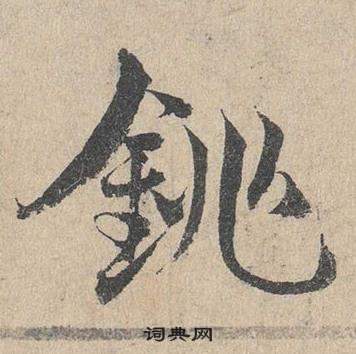 銚
词典网